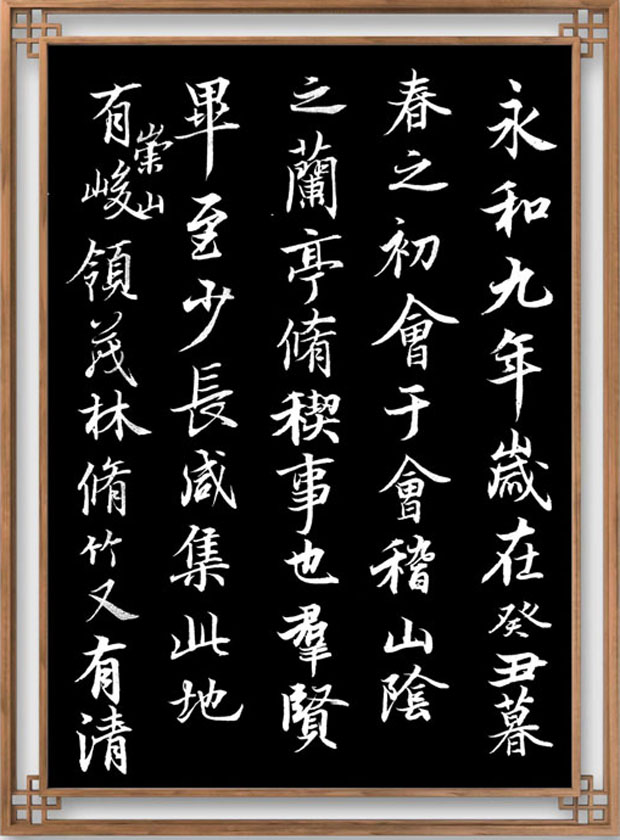 永和九年歲在癸丑暮
春之初會于會稽山陰
之蘭亭脩稧事也羣賢
畢至少長咸集此地
有崇山峻領茂林脩竹又有清